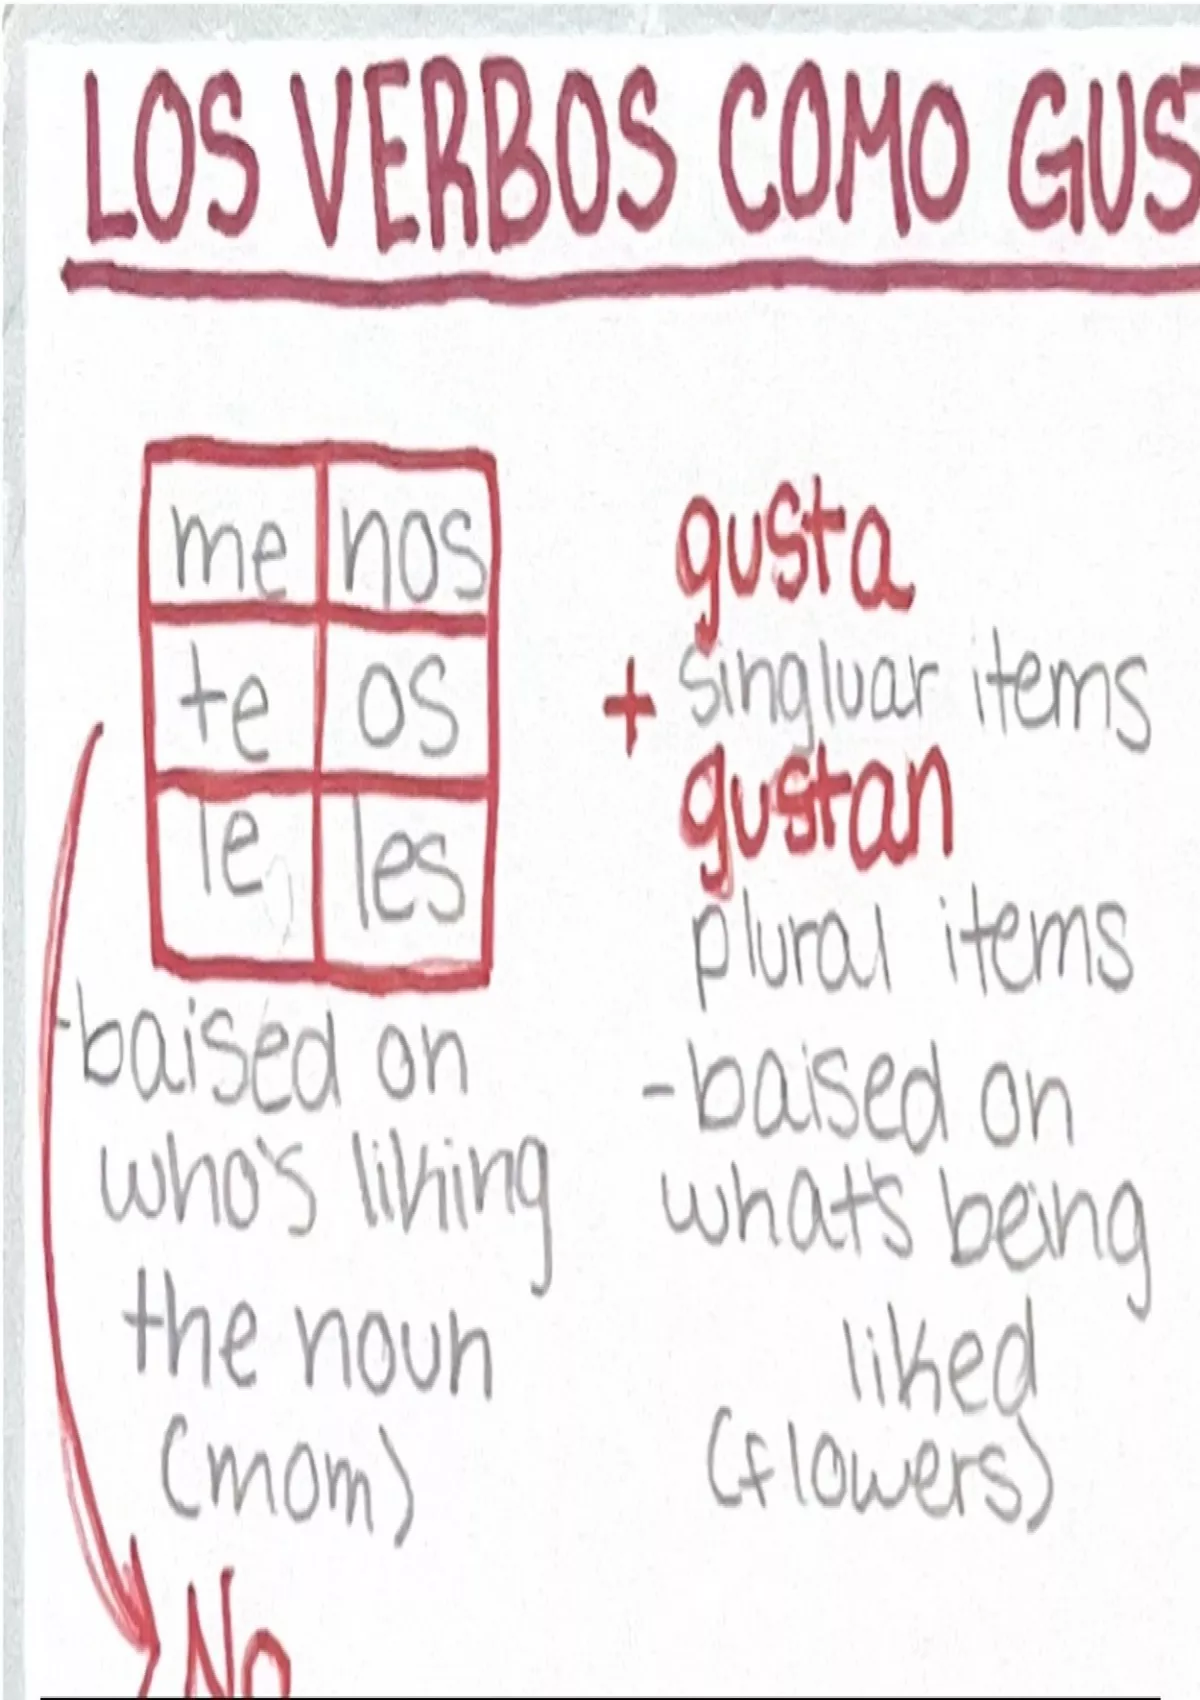 LOS VERBOS COMO GUS
me nos
te os
le les
gusta
+ singluar items
gustan
plural items
-baised on
who's liking
the noun
(mom)
-baised on
what's being
liked
(flowers)
No